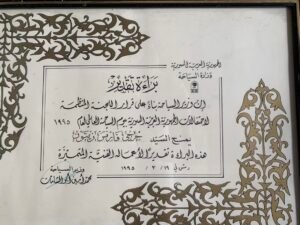 الجمهورية العربية السورية
وزارة السياحة
براءة تقدير
إن وزير السياحة بناءً على قرار اللجنة المنظمة
لاحتفالات الجمهورية العربية السورية بيوم السياحة العالمي لعام ١٩٩٥
يمنح السيد
هذه البراءة تقديراً لأعماله الفنية المتميزة
دمشق في ١٩٩٥
وزير السياحة